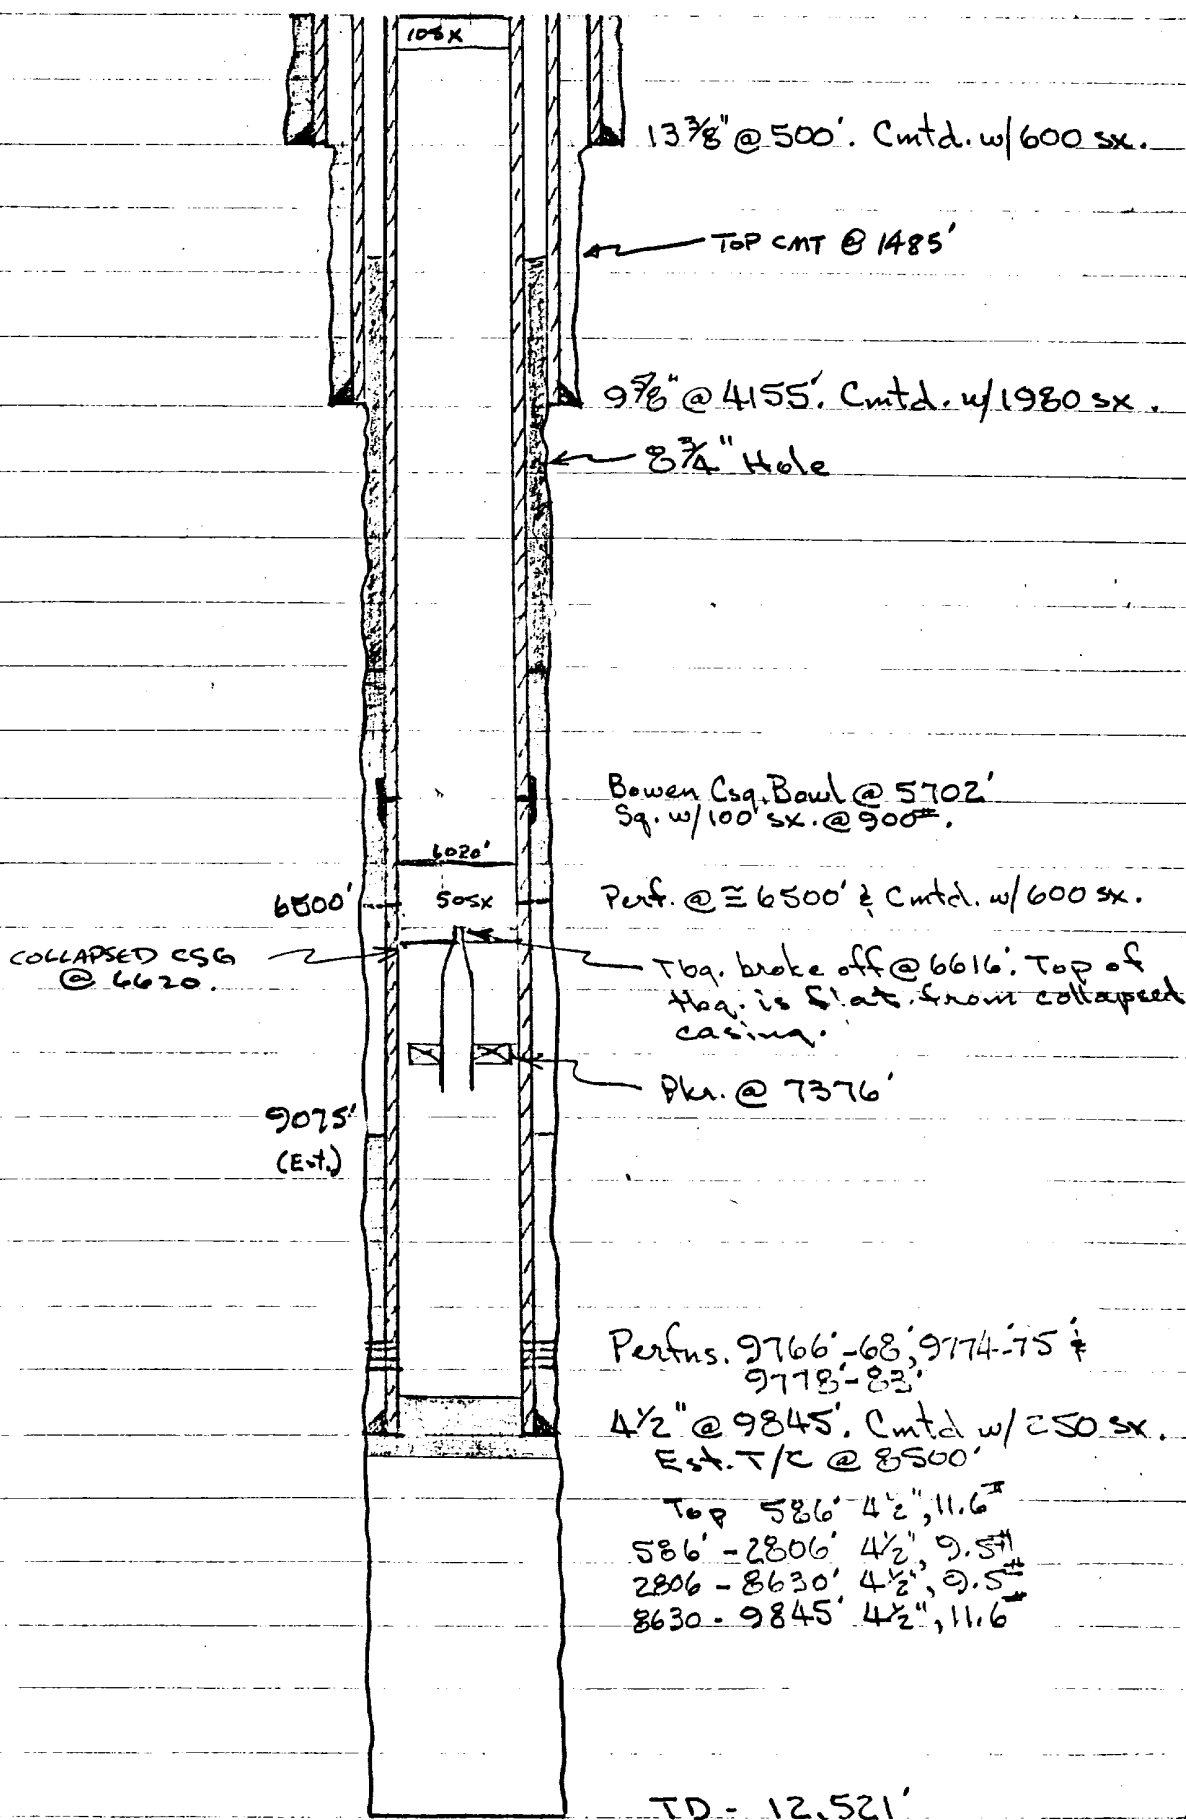 10sx
13 3/8" @ 500'. Cmtd. w/ 600 sx.
TOP CMT @ 1485'
9 5/8" @ 4155'. Cmtd. w/ 1980 sx.
8 3/4" Hole
Bowen Csg. Bowl @ 5702'
Sq. w/ 100 sx. @ 900#.
6020'
6500'
50sx
Perf. @ ≅ 6500' & Cmtd. w/ 600 sx.
COLLAPSED CSG
@ 6620.
Tbg. broke off @ 6616'. Top of
tbg. is flat from collapsed
casing.
Pkr. @ 7376'
9075'
(Est.)
Perfns. 9766'-68', 9774-75' &
9778'-83'
4 1/2" @ 9845'. Cmtd w/ 250 sx.
Est. T/C @ 8500'
Top 586' 4 1/2", 11.6#
586' - 2806' 4 1/2", 9.5#
2806 - 8630' 4 1/2", 9.5#
8630 - 9845' 4 1/2", 11.6#
TD - 12,521'